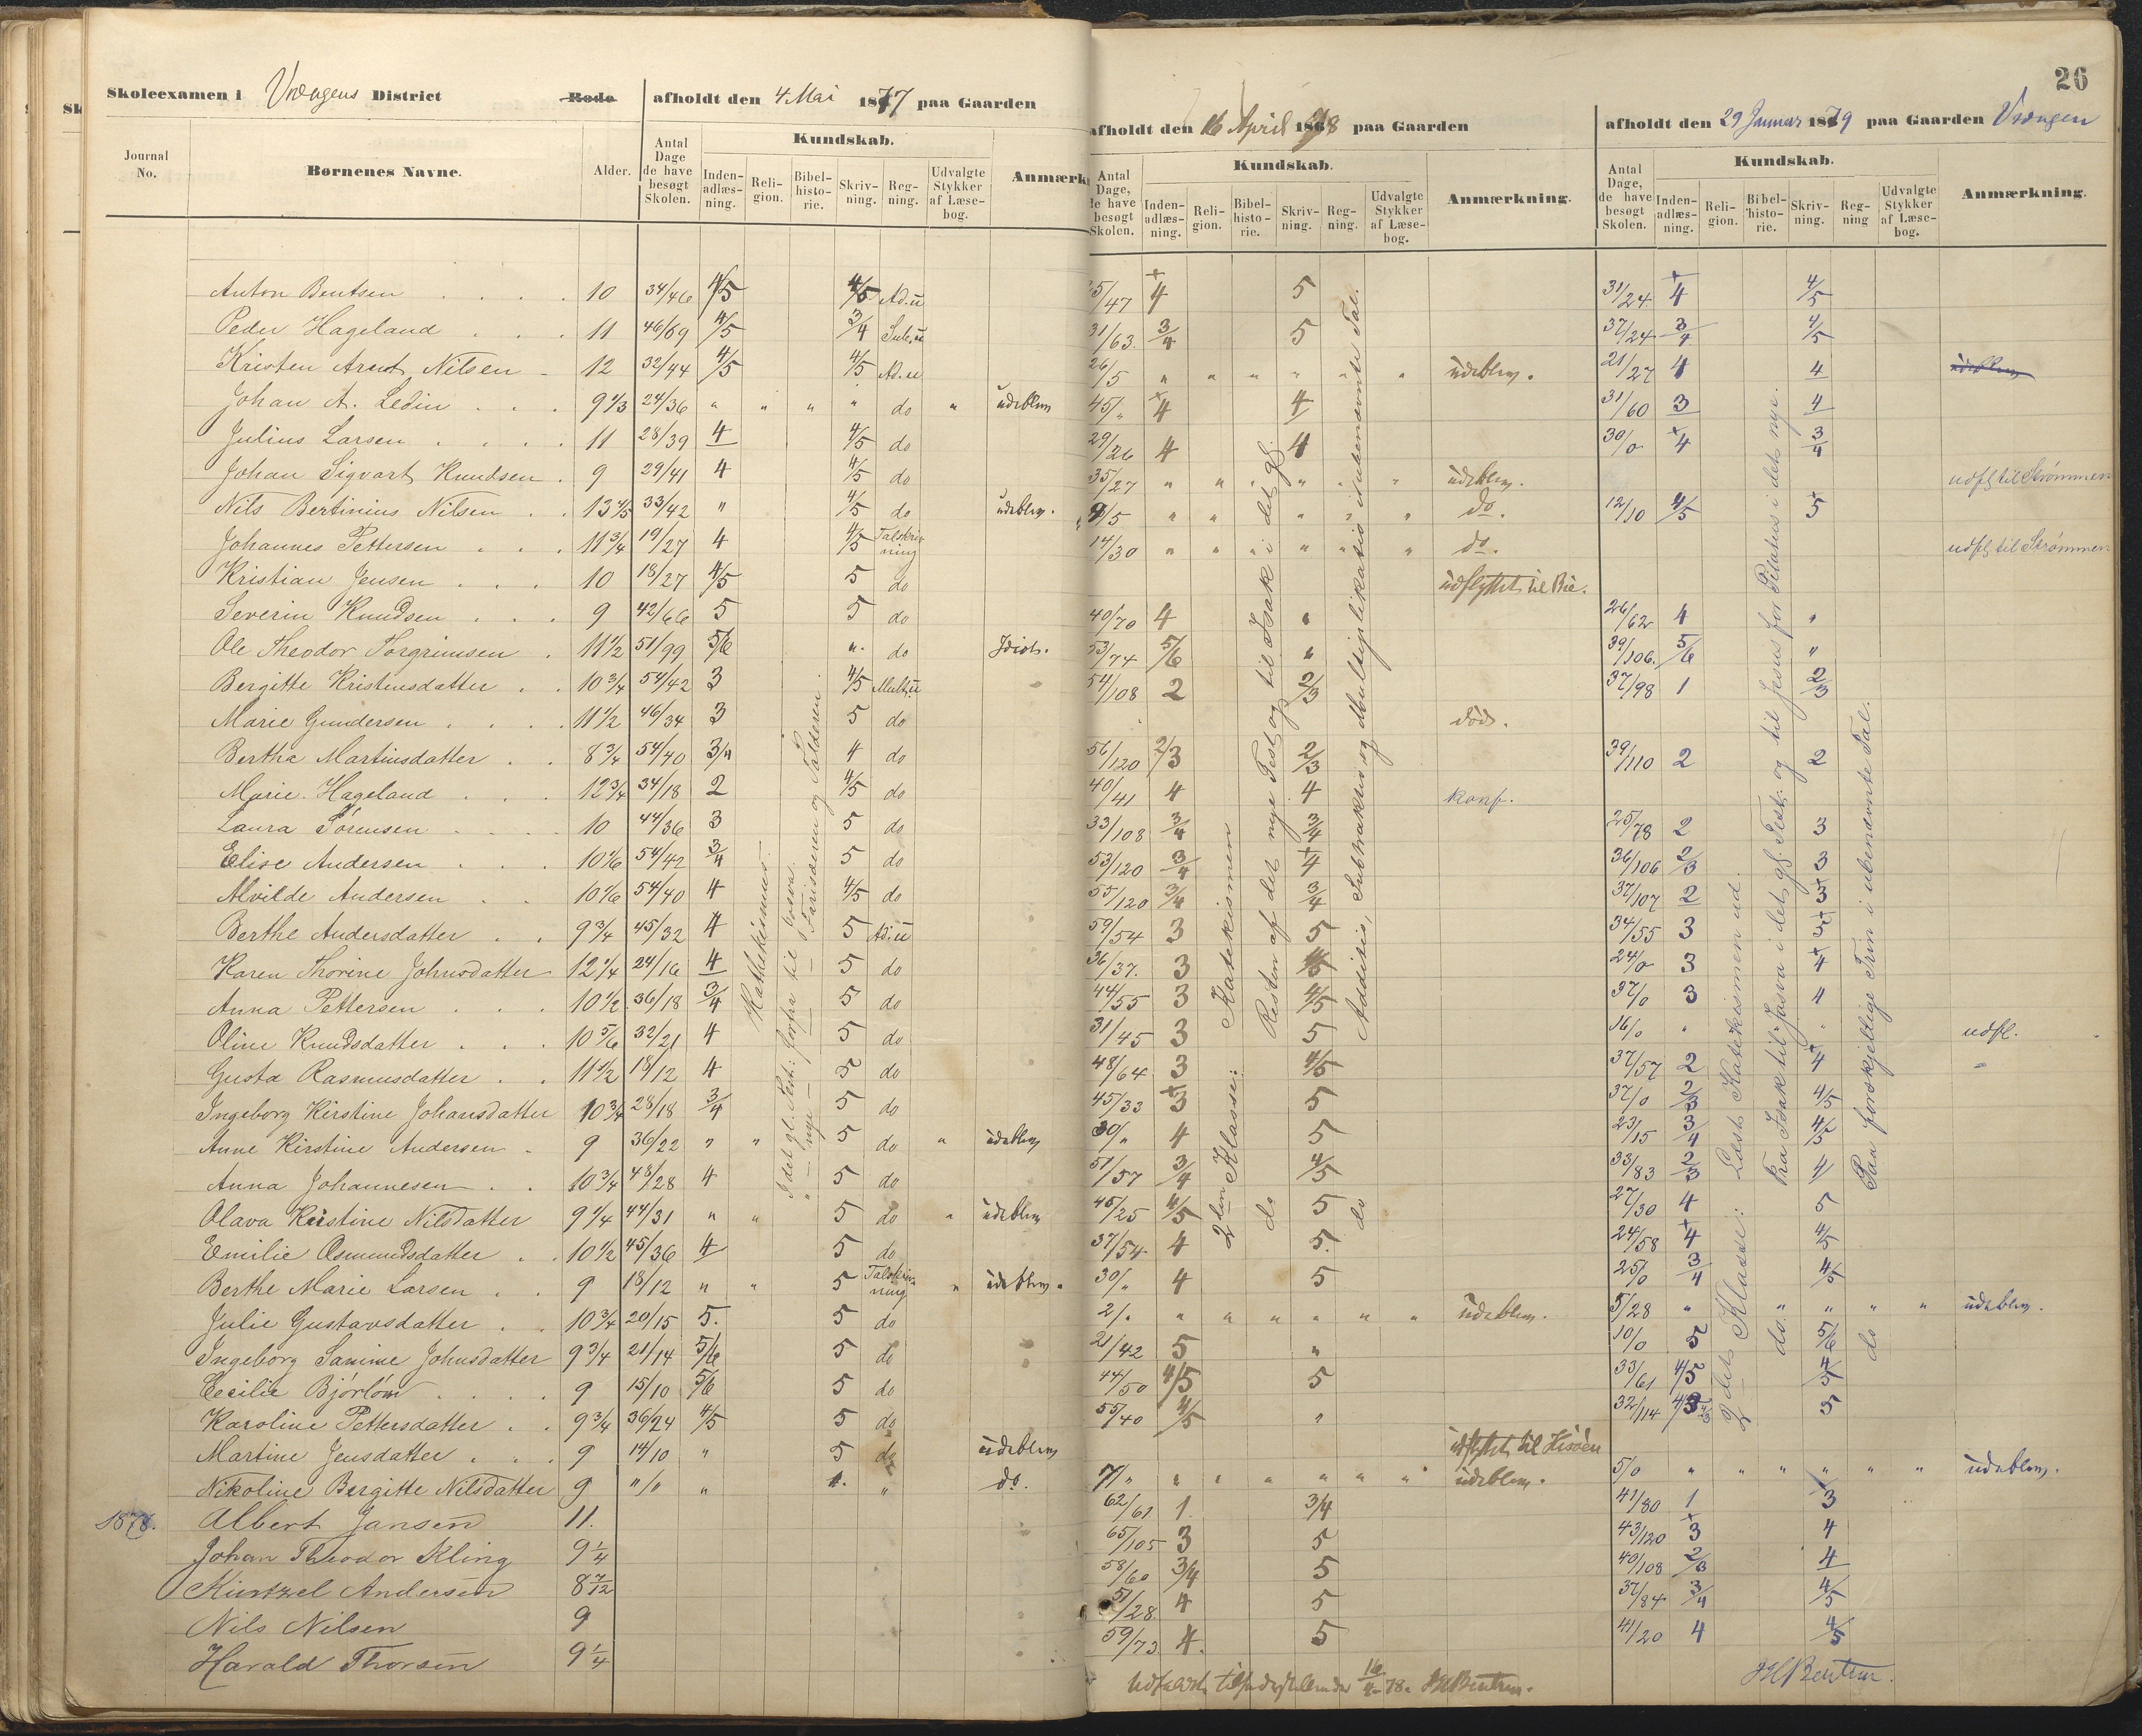 26
Skoleexamen i Vrængens District Rode afholdt den 4 Mai 1877 paa Gaarden
afholdt den 16 April 1878 paa Gaarden
afholdt den 29 Januar 1879 paa Gaarden Vrængen
Journal No. Børnenes Navne. Alder. Antal Dage de have besøgt Skolen. Kundskab. Inden-adlæs-ning. Reli-gion. Bibel-histo-rie. Skriv-ning. Reg-ning. Udvalgte Stykker af Læse-bog. Anmærk
Antal Dage, de have besøgt Skolen. Kundskab. Inden-adlæs-ning. Reli-gion. Bibel-histo-rie. Skriv-ning. Reg-ning. Udvalgte Stykker af Læse-bog. Anmærkning.
Antal Dage, de have besøgt Skolen. Kundskab. Inden-adlæs-ning. Reli-gion. Bibel-histo-rie. Skriv-ning. Reg-ning Udvalgte Stykker af Læse-bog. Anmærkning.
Anton Bentsen 10 34/46 4/5 4/5 Ad. u 4 5 31/24 4 4/5
Peder Hageland 11 46/69 4/5 3/4 Sub. u 31/63 3/4 5 37/24 3/4 4/5
Kristen Arent Nilsen 12 32/44 4/5 4/5 Ad. u 26/5 " " " " " " udeblev. 21/27 4 4 udeblev
Johan A. Ledin 9 1/3 24/36 " " " " do " udeblev 45/" 4 4 31/60 3 4
Julius Larsen 11 28/39 4 4/5 do 29/26 4 4 30/0 4 3/4
Johan Sigvart Knudsen 9 29/41 4 4/5 do 35/27 " " " " " " udeblev. udfl. til Strømmen
Nils Bertinius Nilsen 13 4/5 33/42 " 4/5 do udeblev. " " " " " do. 12/10 4/5 5
Johannes Pettersen 11 3/4 19/27 4 4/5 Talskrivning 14/30 " " " " " " do. udfl. til Strømmen
Kristian Jensen 10 18/27 4/5 5 do udflyttet til Bie.
Severin Knudsen 9 42/66 5 5 do 40/70 4 " 26/62 4 "
Ole Theodor Torgrimsen 11 1/2 51/99 5/6 " do Idiot. 53/74 5/6 " 39/106 5/6 "
Bergitte Kristensdatter 10 3/4 54/42 3 4/5 Mult. u 54/108 2 2/3 37/98 1 2/3
Marie Gundersen 11 1/2 46/34 3 5 do död.
Berthe Martinsdatter 8 3/4 54/40 3/4 4 do 56/120 2/3 2/3 39/110 2 2
Marie Hageland 12 3/4 34/18 2 4/5 do 40/41 4 4 konf.
Laura Sörensen 10 44/36 3 5 do 33/108 3/4 3/4 25/78 2 3
Elise Andersen 10 1/6 54/42 3/4 5 do 53/120 3/4 4 36/106 2/3 3
Alvilde Andersen 10 1/6 54/40 4 4/5 do 55/120 3/4 3/4 37/107 2 3
Berthe Andersdatter 9 3/4 45/32 4 5 Ad. u 59/54 3 5 34/55 3
Karen Thorine Johnsdatter 12 1/4 24/16 4 5 do 36/37 3 4/5 24/0 3 4
Anna Pettersen 10 1/2 36/18 3/4 5 do 44/55 3 4/5 37/0 3 4
Oline Knudsdatter 10 5/6 32/21 4 5 do 31/45 3 5 16/0 " " udfl.
Gusta Rasmusdatter 11 1/2 18/12 4 5 do 48/64 3 4/5 37/57 2 4
Ingeborg Kirstine Johansdatter 10 3/4 28/18 3/4 5 do 45/33 3 5 37/0 2/3 4/5
Anne Kirstine Andersen 9 36/22 " " 5 do " udeblev 30/" 4 5 23/15 3/4 4/5
Anna Johannesen 10 3/4 48/28 4 5 do 51/57 3/4 4/5 33/83 2/3 4
Olava Kristine Nilsdatter 9 1/4 44/31 " " 5 do " udeblev 45/25 4/5 5 27/30 4 5
Emilie Osmundsdatter 10 1/2 45/36 4 5 do 37/54 4 5. 24/58 4 4/5
Berthe Marie Larsen 9 18/12 " " 5 Talskrivning " udeblev. 30/" 4 5 25/0 3/4 4/5
Julie Gustavsdatter 10 3/4 20/15 5. 5 do 2/" " " " " " " udeblev. 5/28 " " " " " udeblev.
Ingeborg Samine Johnsdatter 9 3/4 21/14 5/6 5 do 21/42 5 " 10/0 5 5/6
Cecilie Bjørlöw 9 15/10 5/6 5 do 44/50 4/5 5 33/61 4/5 4/5
Karoline Pettersdatter 9 3/4 36/24 4/5 5 do 55/40 4/5 " 32/114 5
Martine Jensdatter 9 14/10 " 5 do udeblev udflyttet til Hisöen
Nikoline Bergitte Nilsdatter 9 "/" " " do. 7/" " " " " " " udeblev. 5/0 " " " " " " udeblev.
1878. Albert Jansen 11. 62/61 1. 3/4 41/80 1 3
Johan Theodor Kling 9 1/4 65/105 3 5 43/120 3 4
Kintzel Andersen 8 7/12 58/60 3/4 5 40/108 2/3 4
Nils Nilsen 9 51/28 4 5 37/84 3/4 4/5
Harald Thorsen 9 1/4 59/73 4. 5 41/20 4 4/5
Kathekismus.
I det gl. Test: forfra til Josva.
" — nye — " — Farisæeren og Tolderen.
2den Klasse: Katekismen
do Resten af det nye Test. og til Isak i det gl.
do Addition, Subtraktion og Multiplikation i ubenævnte Tal.
2det Klasse: Læst Katekismen ud.
do. Fra Isak til Josva i det gl. Test. og til Jesus for Pilatus i det nye.
do Paa forskjellige Trin i ubenævnte Tal.
Udfaldet tilfredsstillende 16/4-78. JHBentsen.
JHBentsen.